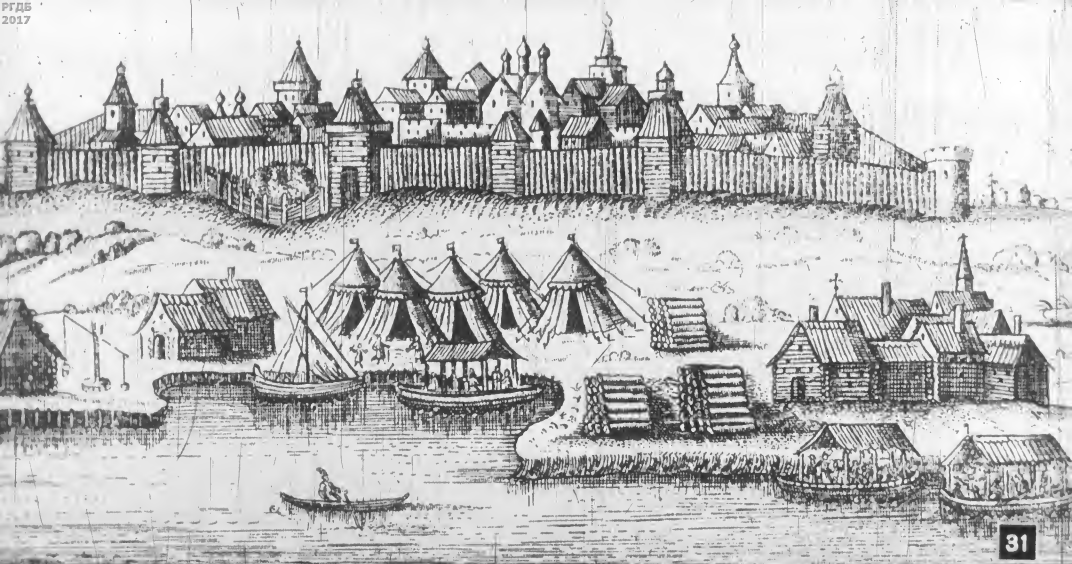 РГДБ
2017
31